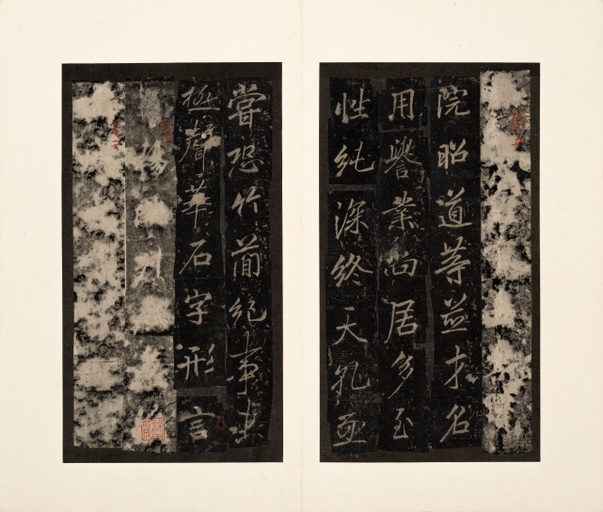 院昭道等並才名
用譽業尚居多至
性純深終天孔亟
嘗恐竹簡紀事未
極聲華石字形言